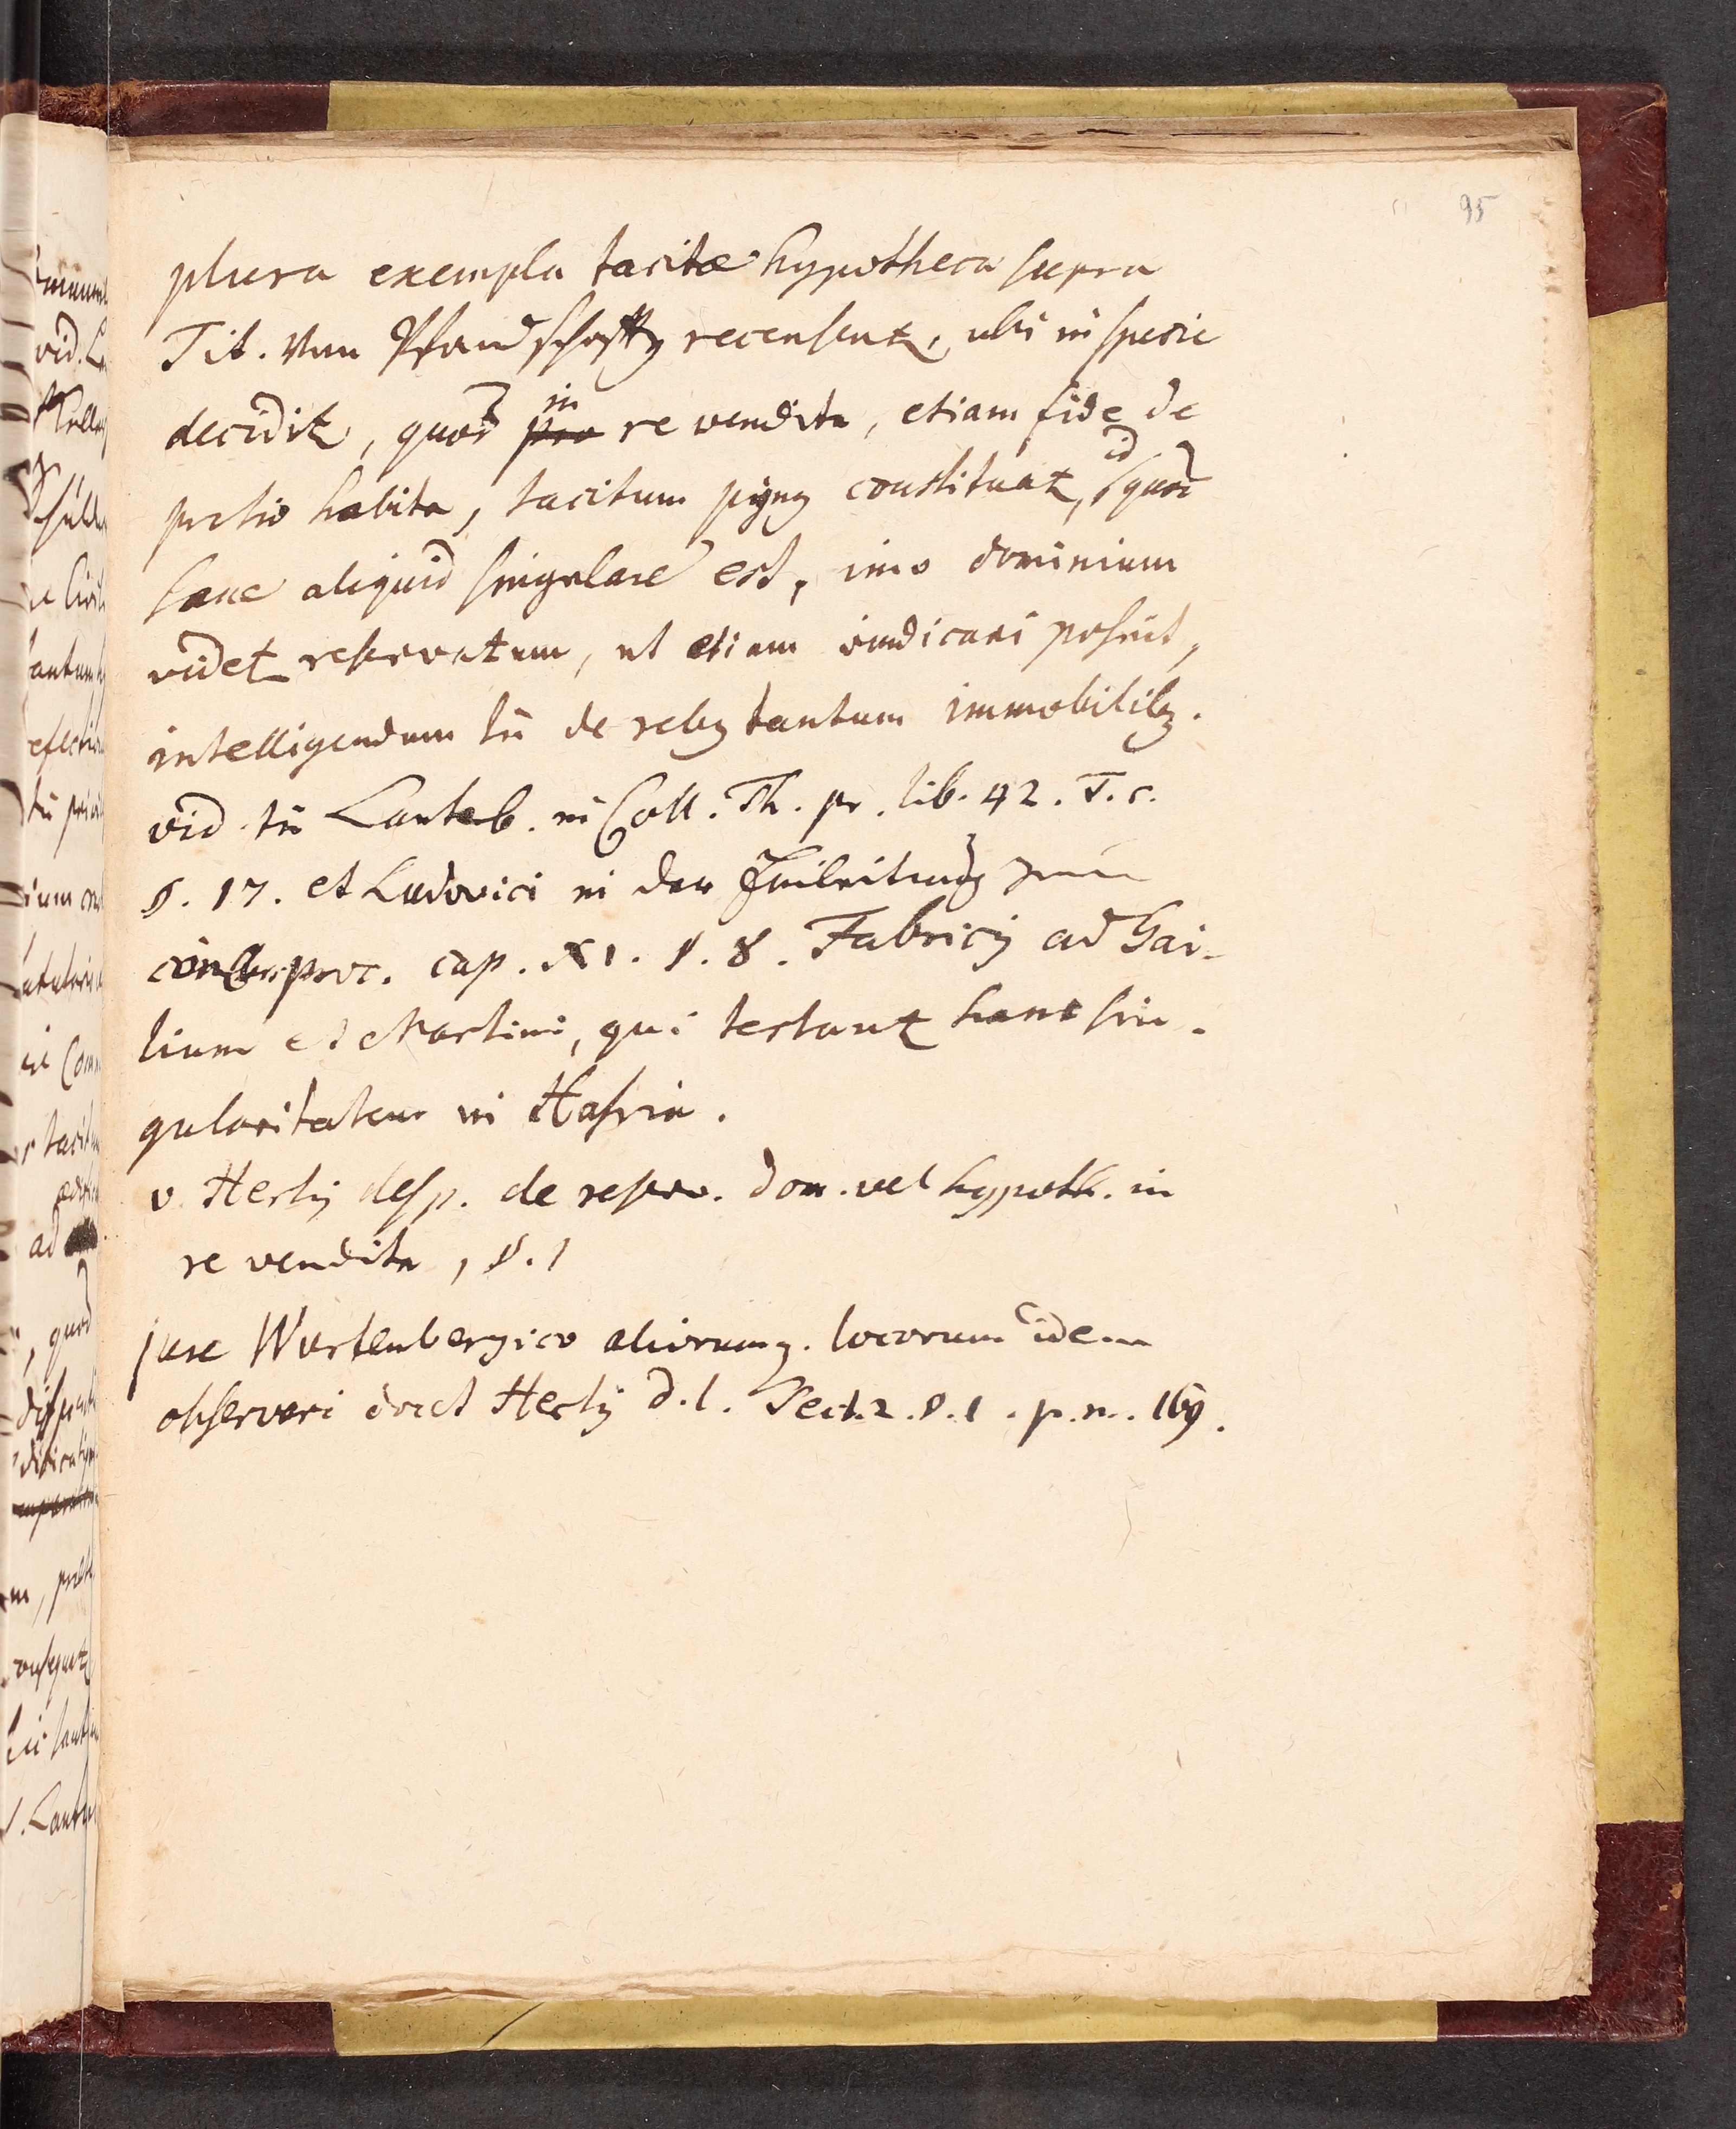 95
plura exempla tacitæ hypothecæ supra
Tit. Von Pfandschafften recensentur, ubi in specie
decidit, quod in pro re vendita, etiam fide de
pretio habita, tacitum pignus constituatur, id quod
sane aliquid singulare est, imo dominium
videtur reservatum, ut etiam vindicari possint,
intelligendum tñ de rebus tantum immobilibus.
vid. tñ Lauterb. in Coll. Th. pr. lib. 42. T. 5.
§. 17. et Ludovici in der Einleitung zum
concurs proc. cap. XI. §. 8. Fabricij ad Gai-
lium et Martini, qui testantur hanc sin-
gularitatem in Hassia.
v. Hertij disp. de reserv. dom. vel hypoth. in
re vendita, §. 1
jure Würtenbergico aliorumq. locorum idem
observari docet Hertij d. l. Sect. 2. §. 1. p. m. 169.